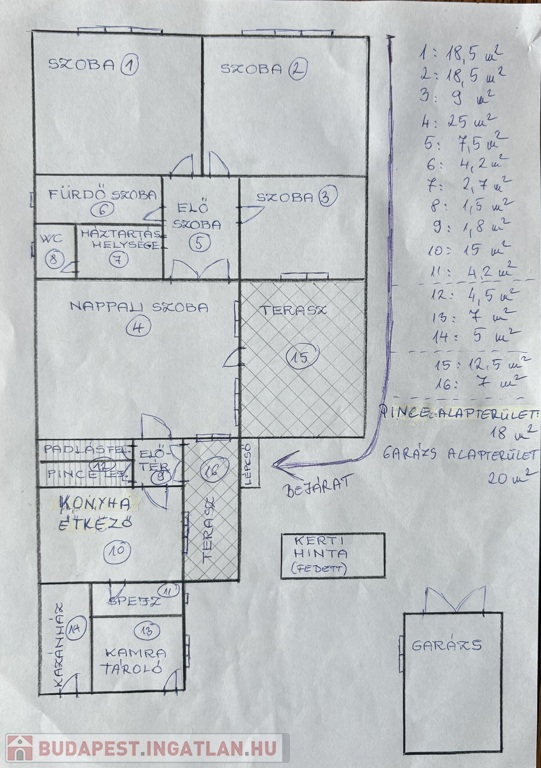 SZOBA 1
SZOBA 2
FÜRDŐ SZOBA
6
ELŐ
SZOBA
5
SZOBA 3
WC
8
HÁZTARTÁS
HELYSÉGE
7
NAPPALI SZOBA
4
TERASZ
15
PADLÁSFEL
12
PINCE
ELŐ-
TÉR
9
16
TERASZ
LÉPCSŐ
BEJÁRAT
KONYHA
ÉTKEZŐ
10
KERTI
HINTA
(FEDETT)
SPEJZ
11
KAZÁNHÁZ
14
13
KAMRA
TÁROLÓ
GARÁZS
1: 18,5 m²
2: 18,5 m²
3: 9 m²
4: 25 m²
5: 7,5 m²
6: 4,2 m²
7: 2,7 m²
8: 1,5 m²
9: 1,8 m²
10: 15 m²
11: 4,2 m²
12: 4,5 m²
13: 7 m²
14: 5 m²
15: 12,5 m²
16: 7 m²
PINCE ALAPTERÜLET:
18 m²
GARÁZS ALAPTERÜLET
20 m²
BUDAPEST.INGATLAN.HU